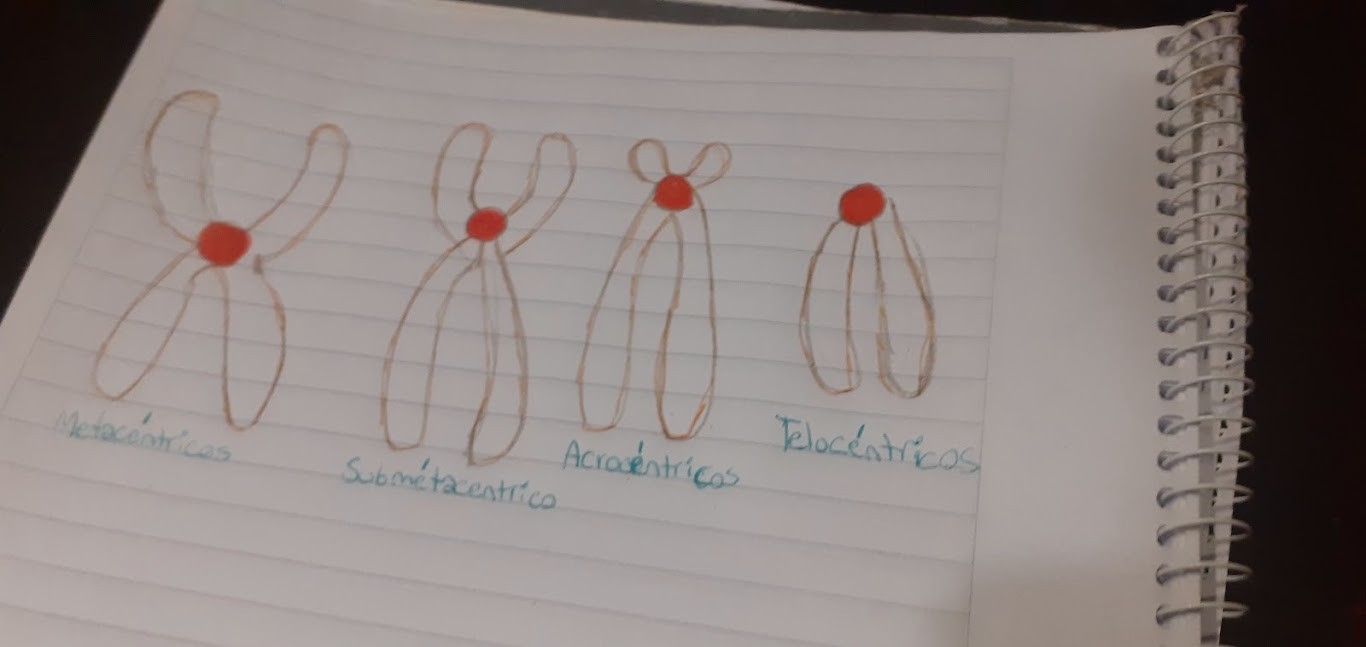 Metacéntricos
Submétacentrico
Acrocéntricos
Telocéntricos